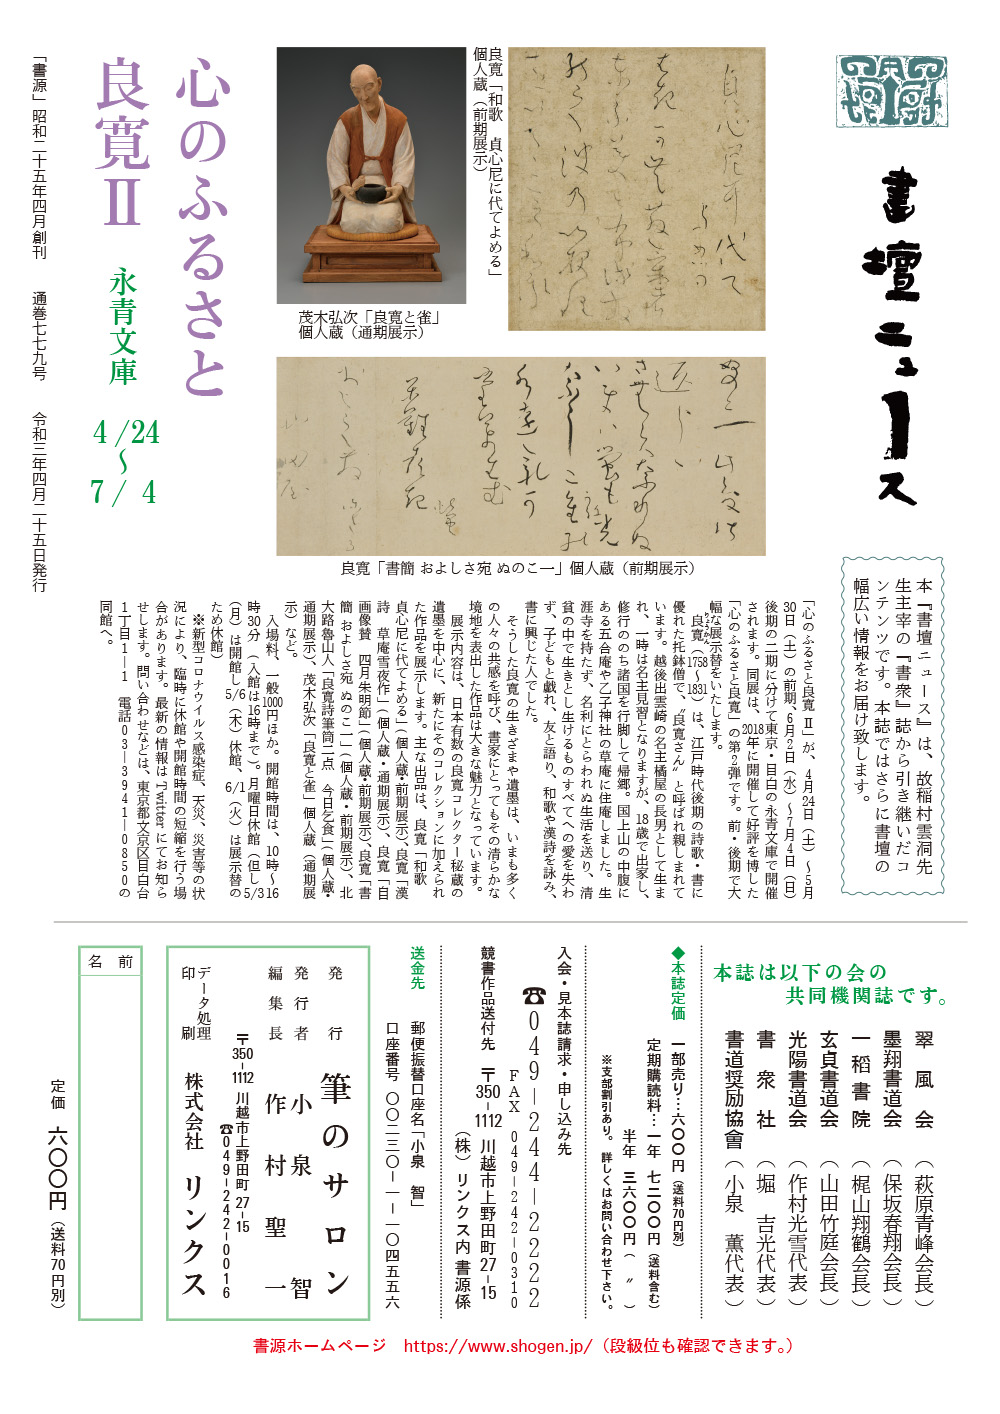 書壇ニュース
本『書壇ニュース』は、故稲村雲洞先
生主宰の『書衆』誌から引き継いだコ
ンテンツです。本誌ではさらに書壇の
幅広い情報をお届け致します。
良寛「和歌　貞心尼に代てよめる」
個人蔵（前期展示）
茂木弘次「良寛と雀」
個人蔵（通期展示）
良寛「書簡 およしさ宛 ぬのこ一」個人蔵（前期展示）
心のふるさと
良寛Ⅱ
永青文庫
4/24
〜
7/ 4
「書源」昭和二十五年四月創刊　通巻七七九号　令和三年四月二十五日発行
「心のふるさと良寛Ⅱ」が、4月24日（土）〜5月
30日（土）の前期、6月2日（水）〜7月4日（日）
後期の二期に分けて東京・目白の永青文庫で開催
されます。同展は、2018年に開催して好評を博した
「心のふるさと良寛」の第2弾です。前・後期で大
幅な展示替をいたします。
良寛（1758〜1831）は、江戸時代後期の詩歌・書に
りょうかん
優れた托鉢僧で、〝良寛さん〟と呼ばれ親しまれて
います。越後出雲崎の名主橘屋の長男として生ま
れ、一時は名主見習となりますが、18歳で出家し、
修行ののち諸国を行脚して帰郷。国上山の中腹に
ある五合庵や乙子神社の草庵に住庵しました。生
涯寺を持たず、名利にとらわれぬ生活を送り、清
貧の中で生きとし生けるものすべてへの愛を失わ
ず、子どもと戯れ、友と語り、和歌や漢詩を詠み、
書に興じた人でした。
そうした良寛の生きざまや遺墨は、いまも多く
の人々の共感を呼び、書家にとってもその清らかな
境地を表出した作品は大きな魅力となっています。
展示内容は、日本有数の良寛コレクター秘蔵の
遺墨を中心に、新たにそのコレクションに加えられ
た作品を展示します。主な出品は、良寛「和歌
貞心尼に代てよめる」（個人蔵・前期展示）、良寛「漢
詩　草庵雪夜作」（個人蔵・通期展示）、良寛「自
画像賛　四月朱明節」（個人蔵・前期展示）、良寛「書
簡 およしさ宛 ぬのこ一」（個人蔵・前期展示）、北
大路魯山人「良寛詩筆筒二点　今日乞食」（個人蔵・
通期展示）、茂木弘次「良寛と雀」個人蔵（通期展
示）など。
入場料、一般1000円ほか。開館時間は、10時〜16
時30分（入館は16時まで）。月曜日休館（但し5/3
（月）は開館し5/6（木）休館、6/1（火）は展示替の
ため休館）
※新型コロナウイルス感染症、天災、災害等の状
況により、臨時に休館や開館時間の短縮を行う場
合があります。最新の情報はTwitterにてお知ら
せします。問い合わせなどは、東京都文京区目白台
1丁目1―1　電話03―3941―0850の
同館へ。
本誌は以下の会の
共同機関誌です。
翠風会（萩原青峰会長）
墨翔書道会（保坂春翔会長）
一稻書院（梶山翔鶴会長）
玄貞書道会（山田竹庭会長）
光陽書道会（作村光雪代表）
書衆社（堀　吉光代表）
書道奨励協會（小泉　薫代表）
◆本誌定価　一部売り…六〇〇円（送料70円別）
定期購読料…一年　七二〇〇円（送料含む）
半年　三六〇〇円（　〃　）
※支部割引あり。詳しくはお問い合わせ下さい。
入会・見本誌請求・申し込み先
☎049―244―2222
FAX 049―242―0310
競書作品送付先　〒350-1112 川越市上野田町27-15
（株）リンクス内 書源係
送金先　郵便振替口座名「小泉　智」
口座番号　〇〇二三〇―一―一〇四五五六
発行　筆のサロン
発行者　小泉　智
編集長　作村聖一
〒350-1112 川越市上野田町27-15
☎049-242-0016
データ処理
印刷　株式会社 リンクス
名　前
定価　六〇〇円（送料70円別）
書源ホームページ　https://www.shogen.jp/（段級位も確認できます。）